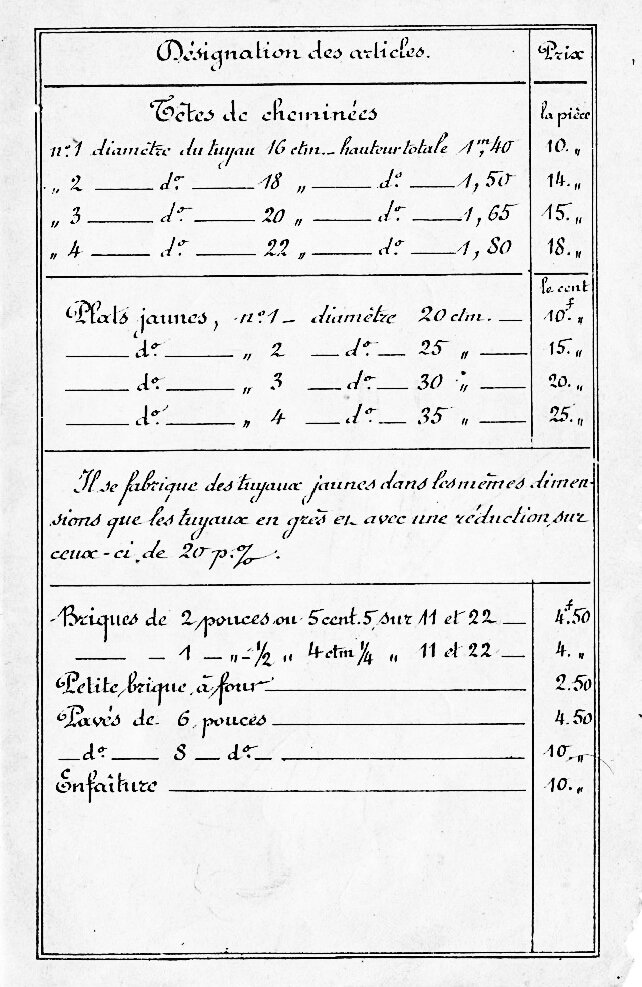 Désignation des articles. Prix
Têtes de cheminées la pièce
n.º 1 diamètre du tuyau 16 ctm. — hauteur totale 1,ᵐ40 10. „
„ 2 — d.º — 18 „ — d.º — 1,50 14. „
„ 3 — d.º — 20 „ — d.º — 1,65 15. „
„ 4 — d.º — 22 „ — d.º — 1,80 18. „
le cent
Plats jaunes, n.º 1 — diamètre 20 ctm. — 10.ᶠ „
— d.º — „ 2 — d.º — 25 „ — 15. „
— d.º — „ 3 — d.º — 30 „ — 20. „
— d.º — „ 4 — d.º — 35 „ — 25. „
Il se fabrique des tuyaux jaunes dans les mêmes dimen-
sions que les tuyaux en grès et avec une réduction, sur
ceux-ci, de 20 p. %.
Briques de 2 pouces ou 5 cent. 5, sur 11 et 22 — 4.ᶠ50
— — 1 — „ — ½ „ 4 ctm ¼ „ 11 et 22 — 4. „
Petite brique, à four — 2.50
Pavés de 6 pouces — 4.50
— d.º — 8 — d.º — 10. „
Enfaîture — 10. „